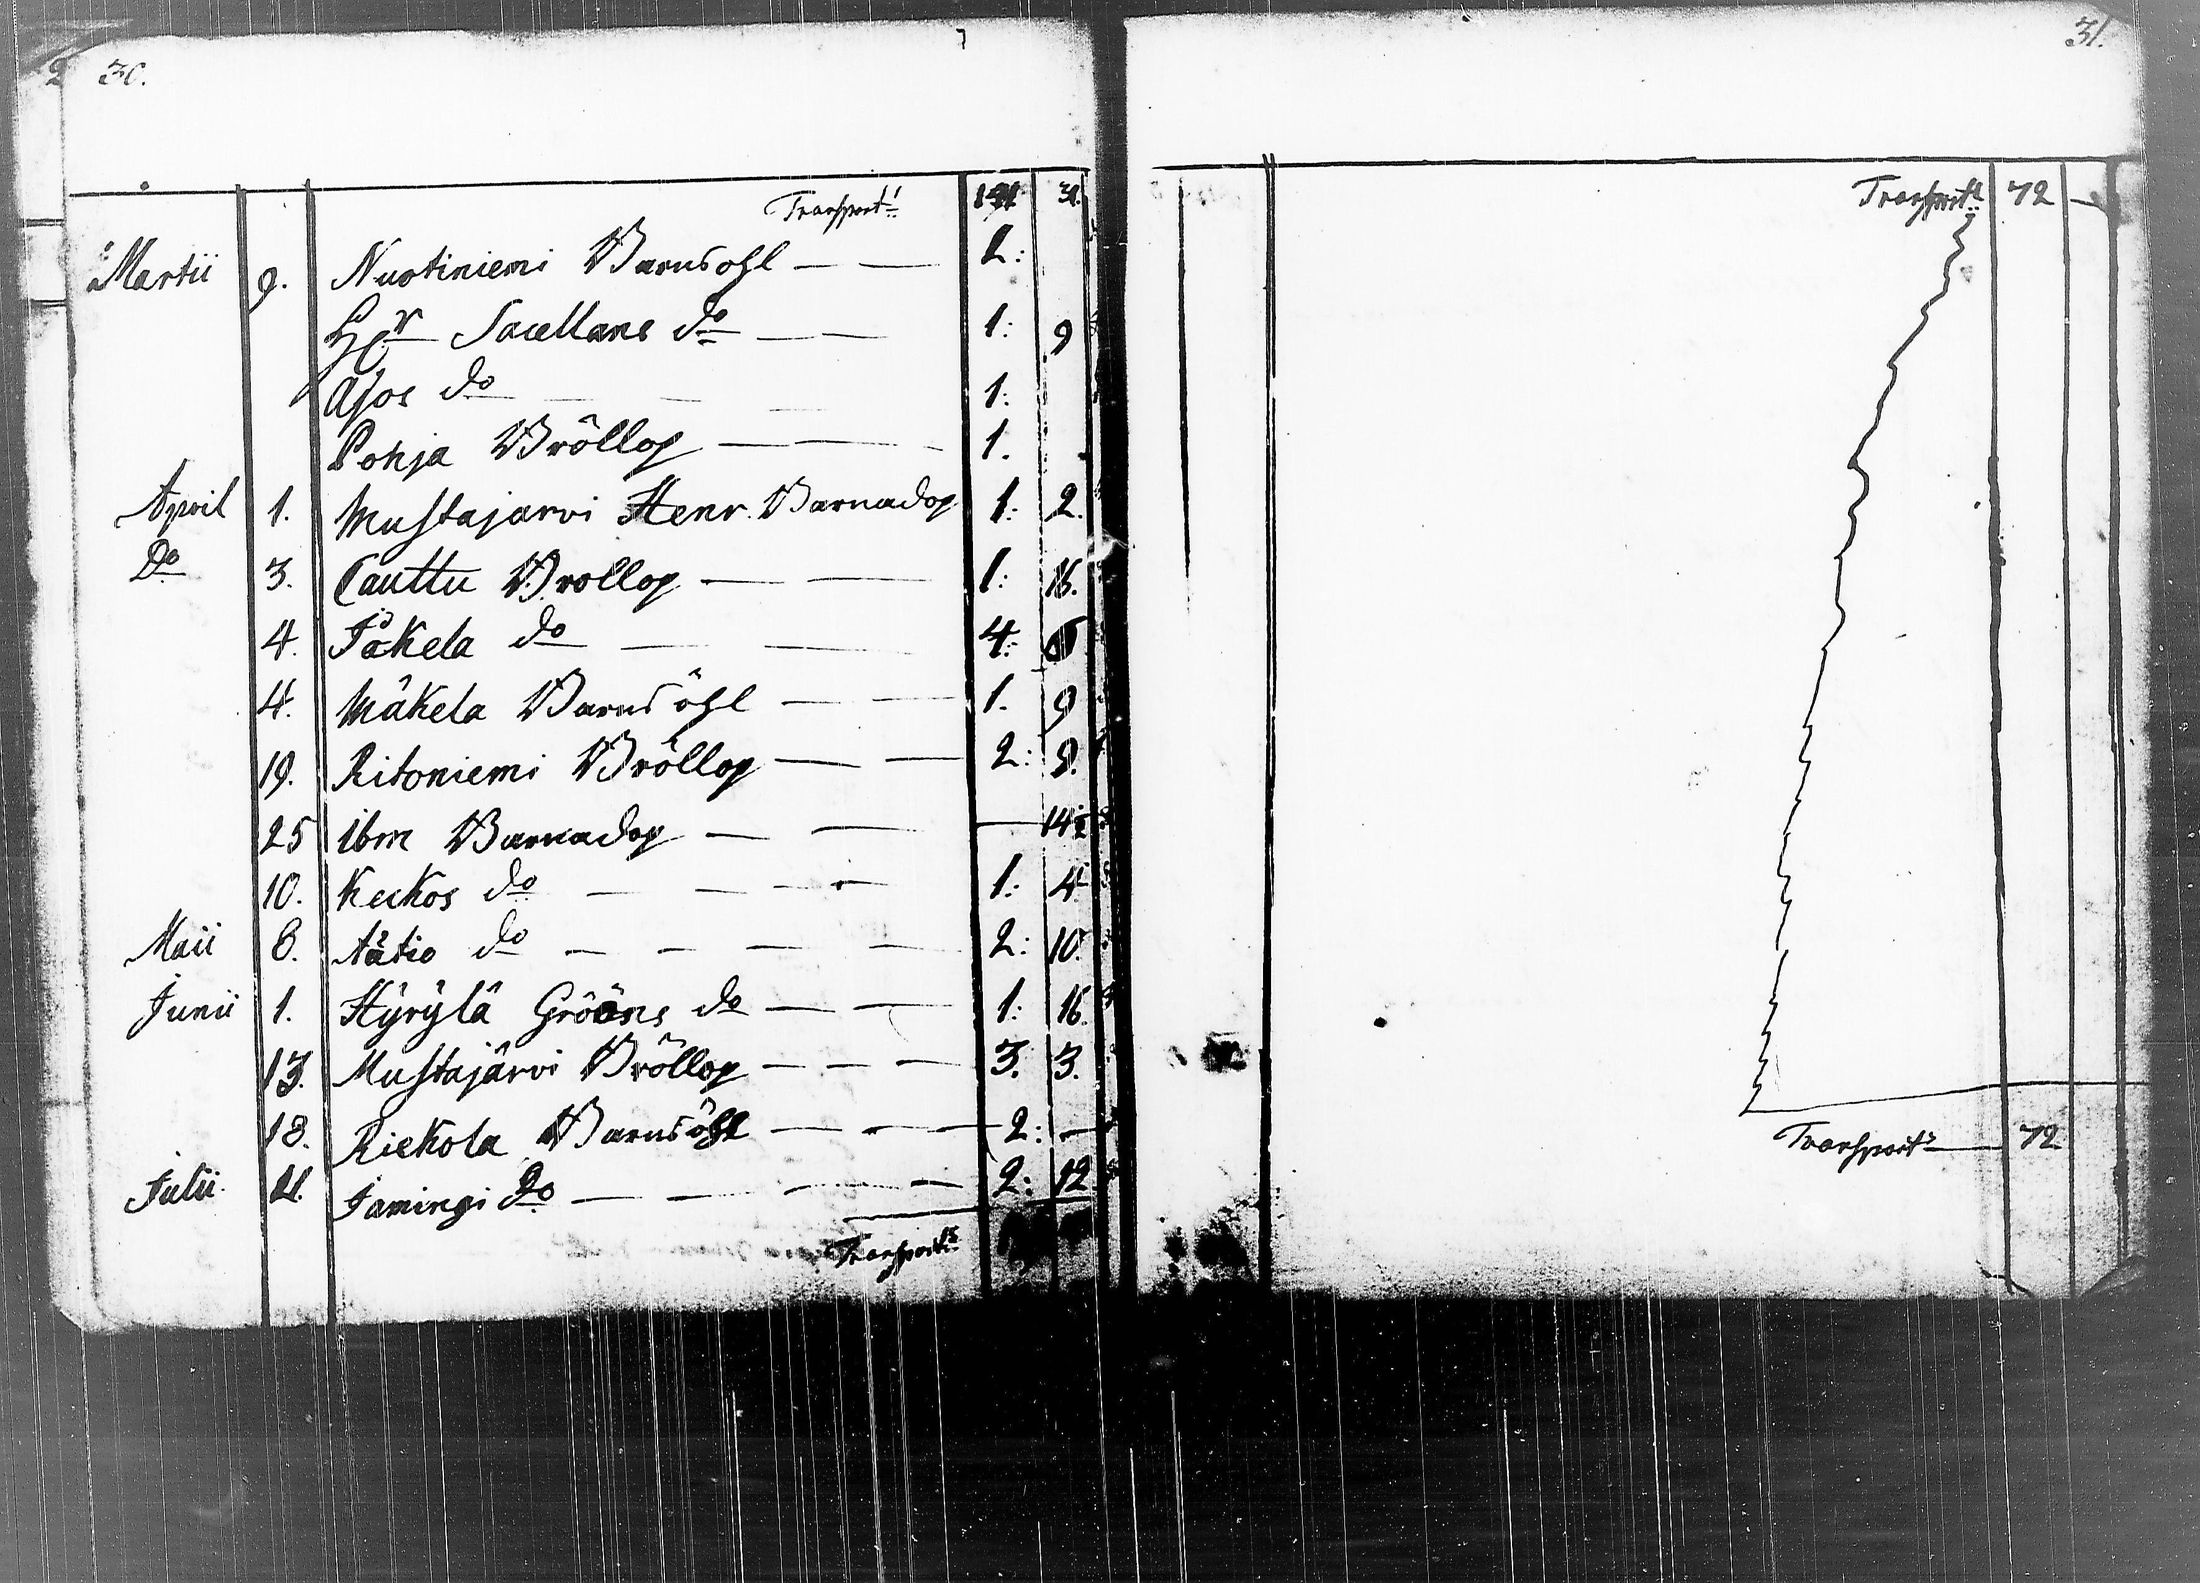 30.
Transport:
Martii 9. Nuotiniemi Barnsöhl — — 2:
Hr Sacellans do — — 1: 9
Ajos do — — — 1:
Pohja Bröllop — — 1.
April 1. Mustajarvi Henr. Barnadop 1: 2.
Do 3. Cauttu Brollop — — 1: 16.
4. Jåkela do — — 4:
4. Mäkela Barnsöhl — — 1. 9
19. Ritoniemi Bröllop — — 2: 9.
25 Ibm Barnadop — — — 14
10. Keckos do — — — 1: 4
Maii 8. Ätio do — — — — 2: 10.
Junii 1. Hÿrÿlä Grööns do — — 1: 16.
13. Mustajärvi Bröllop — — — 3. 3.
18. Riekola Barnsöhl — — — 2: —
Julii 21. Jamingi Do — — — — 2: 12
Transport:
31.
Transport: 72 —
Transport: — 72